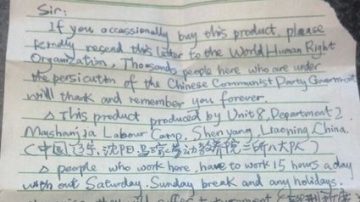 Sir:
If you occassionally buy this product, please
kindly resend this letter to the World Human Right
Organization. Thousands people here who are under
the persicuton of the Chinese Communist Party Government
will thank and remember you forever.
△ This product produced by Unit 8, Department 2
Mashanjia Labour Camp, Shen yang, Liaoning, China.
(中国,辽宁,沈阳,马三家劳动教养院二所八大队)
△ people who work here, have to work 15 hours a day
with out Saturday, Sunday break and any holidays.